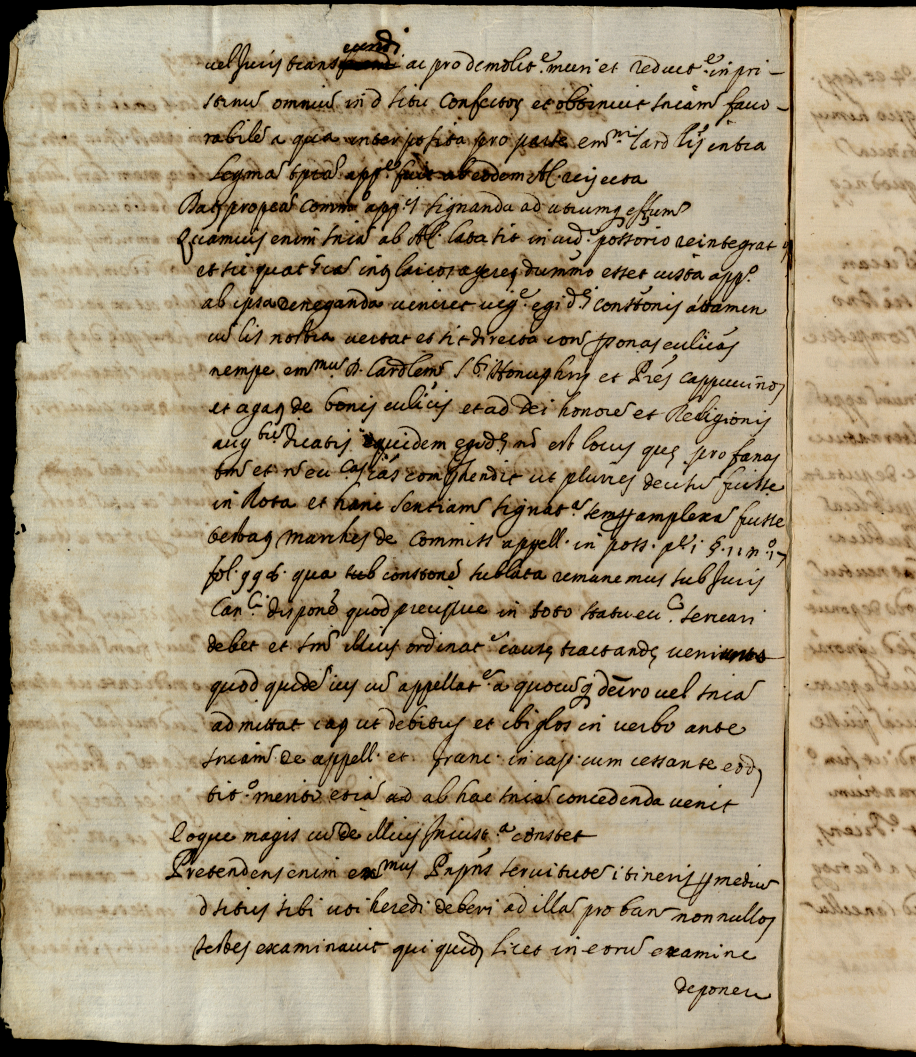 eundi
vel Juris trans ac pro demolit.e muri et reduct.e in pri-
stinũ omniũ in d situ confector et obtinuit sniam favo-
rabilẽ a qua interposita pro parte em.mi Card lis intra
legma tpra app.o fuit ab eodem AC. rejecta
Da propea comm app.s signanda ad utrumq effum
Quamvis enim snia ab AC. lata sit in iud.o possorio reintegrat
et sic quat cas inq laicos ageret dummo esset iusta app.o
ab ipsa deneganda veniret vig.e egid constonis attamen
cũ lis nostra vertat et sit directa con ponas eccticas
nempe em.mum D. Cardlem S Honuphrij et Pres Cappuccinos
et agat de bonis eccticis et ad Dei honorẽ et Religionis
aug dicatis equidem egid nõ est locus que profanas
tm et nõ ecc.cas cas comphendit ut pluries decisũ fuisse
in Rota et hanc sentiam signat.e semp amplexã fuisse
testat Marches de Commiss appell. in poss. p. 1 §. 11 n.o 17
fol. 998. qua sub constone sublata remanemus sub Juris
Can.ci dispone quod precipue in toto statu ecc.co servari
debet et sm illius ordinat.e caute tractande veniunt
quod quidẽ ius cũ appellat.e a quocũq decro vel snia
admittat cap ut debitus et ibi glos in verbo ante
sniam de appell. et Franc. in cap. cum cessante eod
tit.o merito etiã ad ab hac snia concedenda venit
Eoque magis cũ de illius Iniust.a constet
Pretendens enim em.mus Prpns servitutẽ itineris p mediũ
d situs sibi uti heredi deberi ad illã proban nonnullos
testes examinavit qui quid licet in eorũ examine
deponere